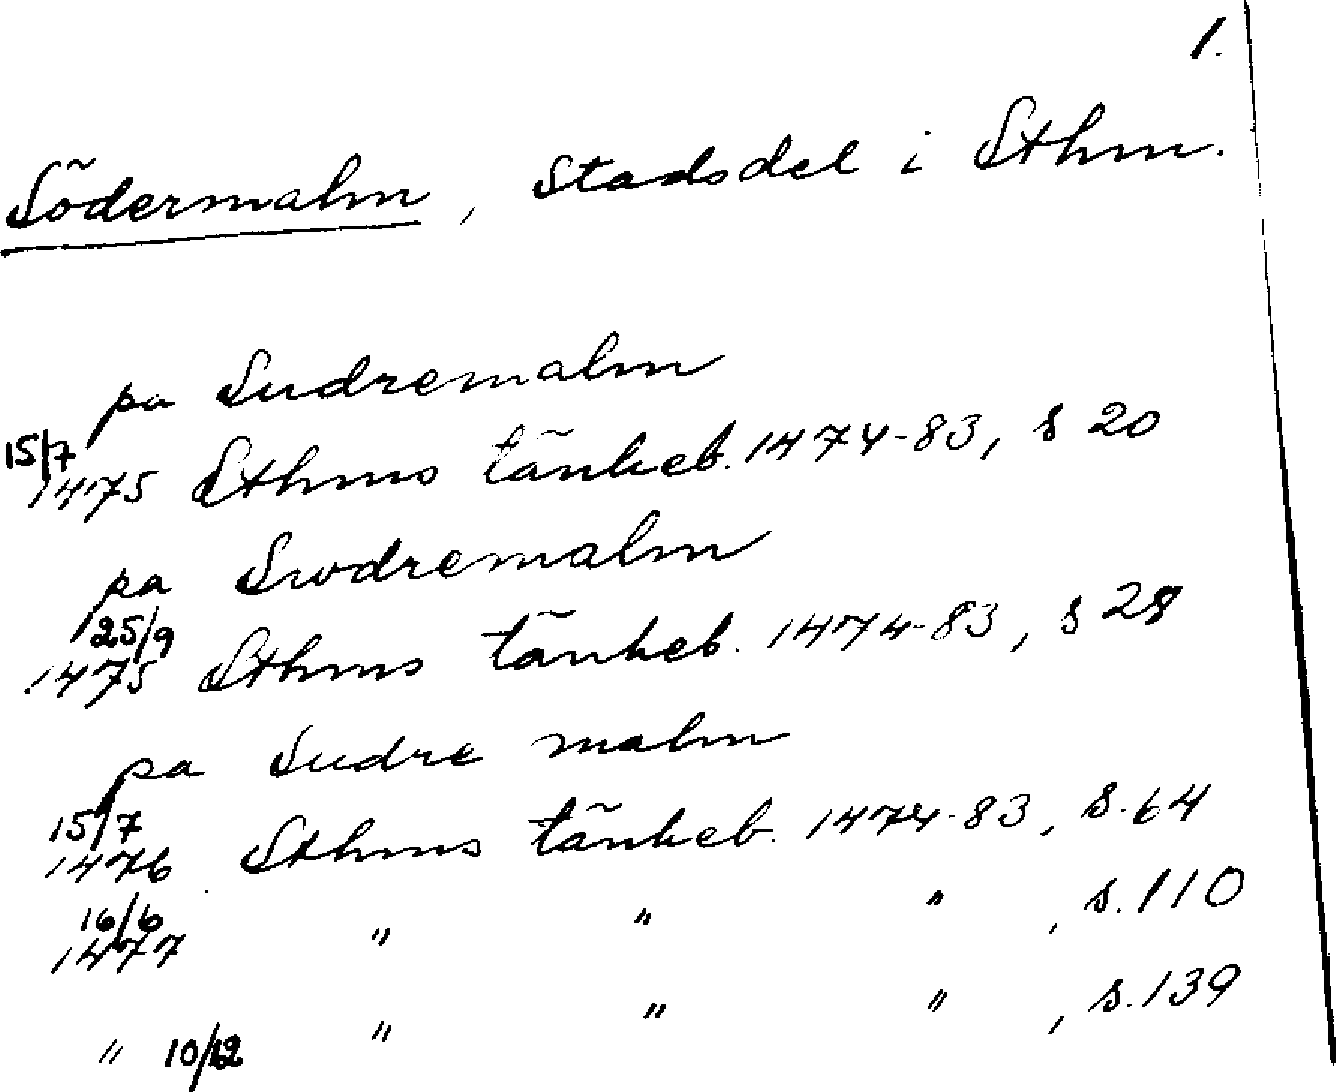 1.
Södermalm, Stadsdel i Sthm.
pa Sudremalm
15/7
1475 Sthms tänkeb. 1474-83, s 20
pa Swdremalm
25/9
1475 Sthms tänkeb. 1474-83, s 28
pa Sudre malm
15/7
1476 Sthms tänkeb. 1474-83, s. 64
16/6
1477 " " " , s. 110
" 10/12 " " " , s. 139